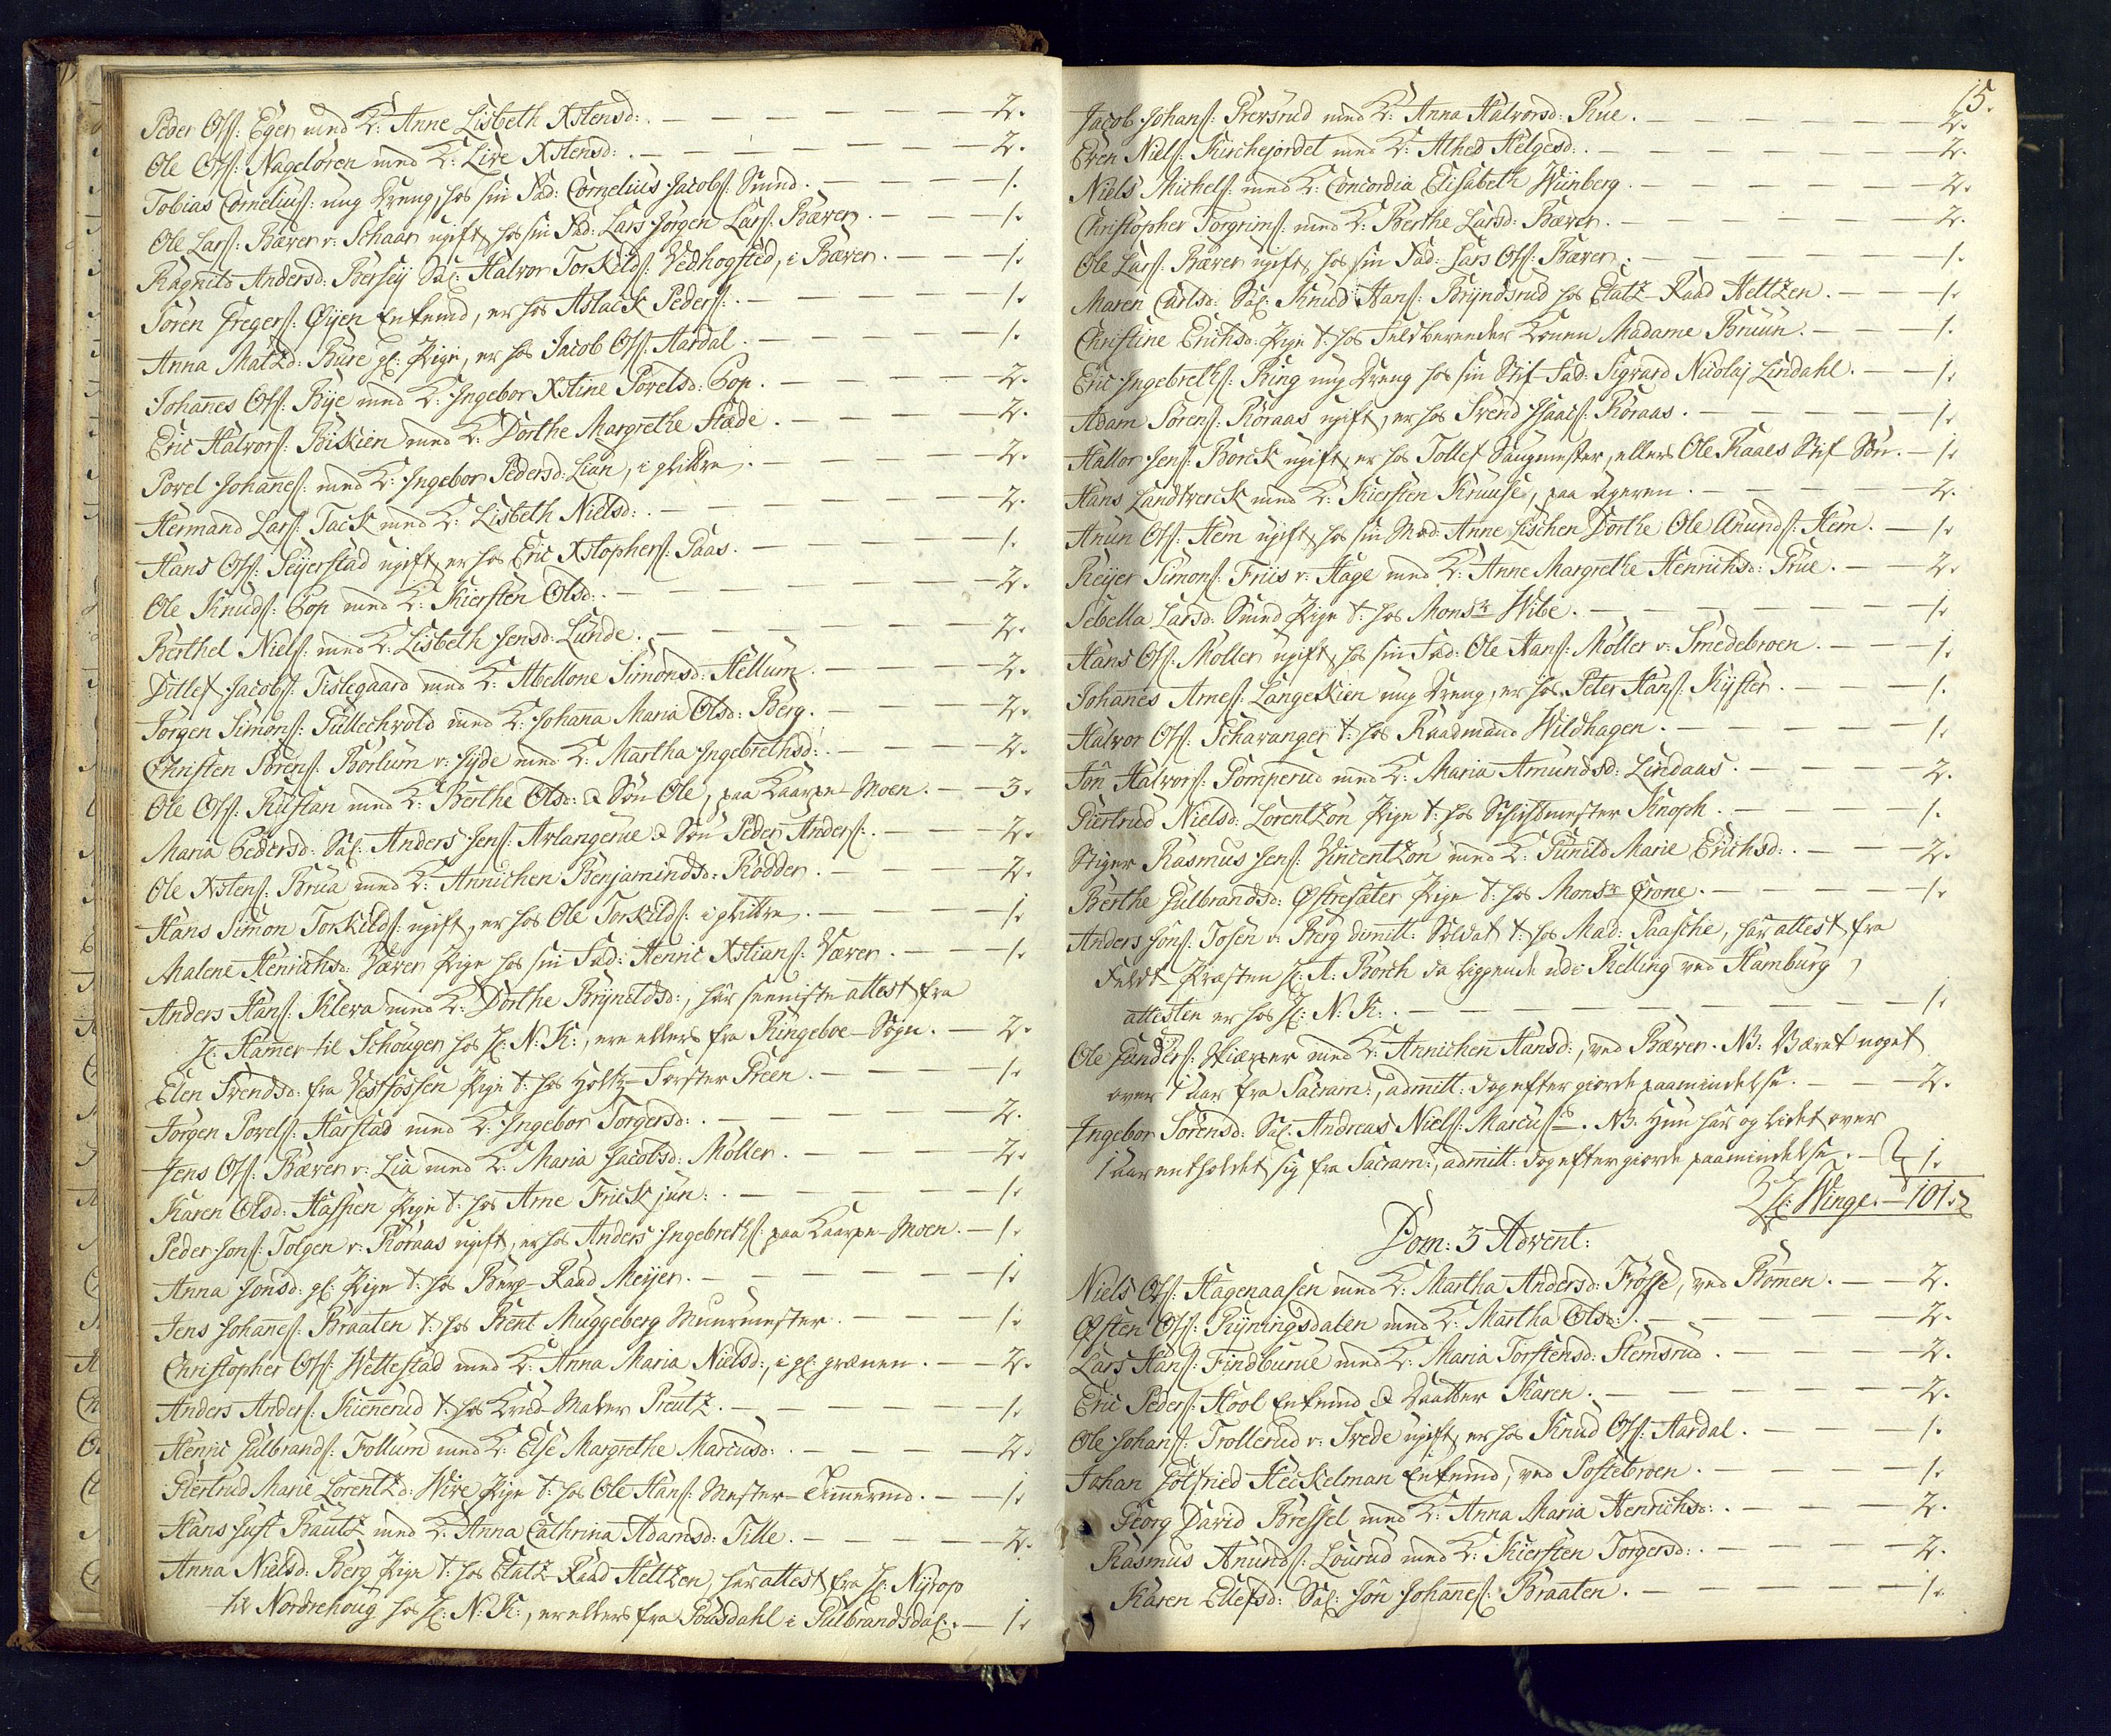 Peder Ols: Eger med K: Anne Lisbeth Xstensd: — 2.
Ole Ols: Nageløren med K: Live Xstensd: — 2.
Tobias Cornelius: ung Dreng, hos sin Fad: Cornelius Jacobs: Smed. — 1.
Ole Lars: Bæver v: Schaar ugift, hos sin Fad: Lars Jørgen Lars: Bæver. — 1.
Ragnild Andersd: Bersey Sal: Halvor Torkilds: Vedhogsted, i Bæver. — 1.
Søren Gregers: Øyen Enkemd, er hos Aslack Peders: — 1.
Anna Matzd: Bure gl: Pige, er hos Jacob Ols: Aardal. — 1.
Johan̄es Ols: Bye med K: Ingebor Xstine Povelsd: Gop. — 2.
Eric Halvors: Biskien med K: Dorthe Margrethe Stæde. — 2.
Povel Johan̄es: med K: Ingebor Pedersd: Lian, i — 2.
Hermand Lars: Tack med K: Lisbeth Nielsd: — 2.
Hans Ols: Seyerstad ugift, er hos Eric Xstophers: Gaas. — 1.
Ole Knuds: Gop med K: Kiersten Olsd: — 2.
Berthel Niels: med K: Lisbeth Jensd: Lunde. — 2.
Ditlef Jacobs: Tislegaard med K: Abellone Simonsd: Hellum. — 2.
Jørgen Simons: Gullechvold med K: Johan̄a Maria Olsd: Berg. — 2.
Christen Sørens: Borlum v: Jyde med K: Martha Ingebrethsd: — 2.
Ole Ols: Rustan med K: Berthe Olsd: & Søn Ole, paa Kaarpe-Moen. — 3.
Maria Pedersd: Sal: Anders Jens: Avlangerue & Søn Peder Anders: — 2.
Ole Xstens: Brua med K: An̄ichen Benjamindsd: Rødder. — 2.
Hans Simon Torkilds: ugift, er hos Ole Torkilds: i — 1.
Malene Henrichsd: Væver Pige hos sin Fad: Henric Xstians: Væver. — 1.
Anders Hans: Kleva med K: Dorthe Brynildsd:, har seeniste attest fra
H: Ham̄er til Schougen hos H: N: K:, ere ellers fra Ringeboe-Sogn. — 2.
Elen Svendsd: fra Vestfossen Pige t: hos Holtz-Førster Preen. — 1.
Jørgen Povels: Harstad med K: Ingebor Torgersd: — 2.
Jens Ols: Bæver v: Lia med K: Maria Jacobsd: Møller. — 2.
Karen Olsd: Haspen Pige t: hos Arne Frick jun: — 1.
Peder Jons: Tolgen v: Røraas ugift, er hos Anders Ingebreths: paa Kaarpe-Moen. — 1.
Anna Jonsd: gl: Pige t: hos Berg-Raad Meyer. — 1.
Jens Johan̄es: Braaten t: hos Bent Muggeberg Muurmester. — 1.
Christopher Ols: Wettestad med K: Anna Maria Nielsd:, i gl: grænen. — 2.
Anders Anders: Kiennerud t: hos Krud-Mager Preutz. — 1.
Henric Gulbrands: Follum med K: Else Margrethe Marcusd: — 2.
Giertrud Marie Lorentzd: Wire Pige t: hos Ole Hans: Mester-Tim̄ermd. — 1.
Hans Just Bautz med K: Anna Cathrina Adamsd: Tille. — 2.
Anna Nielsd: Berg Pige t: hos Etatz-Raad Heltzen, har attest fra H: Nyrop
til Nordrehoug hos H: N: K:, er ellers fra Gousdahl i Gulbrandsdal. — 1.
15.
Jacob Johans: Prersrud med K: Anna Halvorsd: Rue. — 2.
Even Niels: Kirchejordet med K: Athed Helgesd: — 2.
Niels Michels: med K: Concordia Elisabeth Wiinberg. — 2.
Christopher Torgrims: med K: Berthe Larsd: Bæver. — 2.
Ole Lars: Bæver ugift, hos sin Fad: Lars Ols: Bæver. — 1.
Maren Carlsd: Sal: Knud Hans: Bryndsrud hos Etatz-Raad Heltzen. — 1.
Christine Erichsd: Pige t: hos Feldberender Konen Madame Bruun. — 1.
Eric Ingebreths: Ring ung Dreng hos sin Stif-Fad: Sigvard Nicolaj Lindahl. — 1.
Adam Sørens: Røraas ugift, er hos Svend Isaacs: Røraas. — 1.
Hallor Jens: Borck ugift, er hos Tollef Saugmester, ellers Ole Raaes Stif Søn. — 1.
Hans Landverck med K: Kiersten Kruuse, paa Ageren. — 2.
Anun Ols: Hem ugift, hos sin Mod: Anne Lischen Dorthe Ole Anunds: Hem. — 1.
Reyer Simons: Friis v: Hage med K: Anne Margrethe Henrichsd: Prue. — 2.
Sebella Larsd: Smed Pige t: hos Monsr Wibe. — 1.
Hans Ols: Møller ugift, hos sin Fad: Ole Hans: Møller v: Smedebroen. — 1.
Johan̄es Arnes: Langeskien ung Dreng, er hos Peter Hans: Kyster. — 1.
Halvor Ols: Schavanger t: hos Raadmand Wildhagen. — 1.
Jon Halvors: Pomperud med K: Maria Amundsd: Lindaas. — 2.
Giertrud Nielsd: Lorentzon Pige t: hos Schichtmester Knoph. — 1.
Stiger Rasmus Jens: Vincentzon med K: Gunild Marie Erichsd: — 2.
Berthe Gulbrandsd: Østresæter Pige t: hos Monsr Crone. — 1.
Anders Jons: Tosen v: Berg dimitt: Soldat t: hos Mad: Paasche, har attest fra
Feldt-Præsten H: A: Borch da liggende udi Relling ved Hamburg,
attesten er hos H: N: K: — 1.
Ole Gunders: Skiærer med K: An̄ichen Hansd:, ved Bæver. NB: Været noget
over 1 aar fra Sacram:, admitt: dog efter giorde paamindelse. — 2.
Ingebor Sørensd: Sal: Andreas Niels: Marcus: NB: Hun har og lidet over
1 aar entholdet sig fra Sacram:, admitt: dog efter giorde paamindelse. — 1.
H: Winge. — 101.
Dom: 3 Advent:
Niels Ols: Hagenaasen med K: Martha Andersd: Frøsse, ved Bom̄en. — 2.
Østen Ols: Ryningsdalen med K: Martha Olsd: — 2.
Lars Hans: Findburue med K: Maria Torstensd: Stemsrud. — 2.
Eric Peders: Hool Enkemd & Daatter Karen. — 2.
Ole Johans: Trollerud v: Svede ugift, er hos Knud Ols: Aardal. — 1.
Johan Gotfried Heckelman Enkemd, ved Postebroen. — 1.
Georg David Bressel med K: Anna Maria Henrichsd: — 2.
Rasmus Anunds: Lourud med K: Kiersten Torgersd: — 2.
Karen Ellefsd: Sal: Jon Johan̄es: Braaten. — 1.